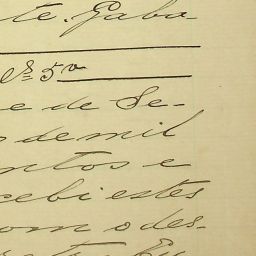 te. Gaba-
Nº 5v
e de Se-
s de mil
entos e
cebi estes
om o des-